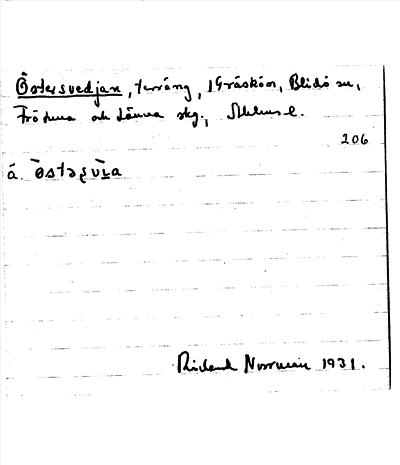 Östersvedjan, terräng, Gräskön, Blidö sn,
Frötuna och Länna skg., Sthlms l.
206
å. ōstəʂv̄ɩa
Rickard Norrman 1931.